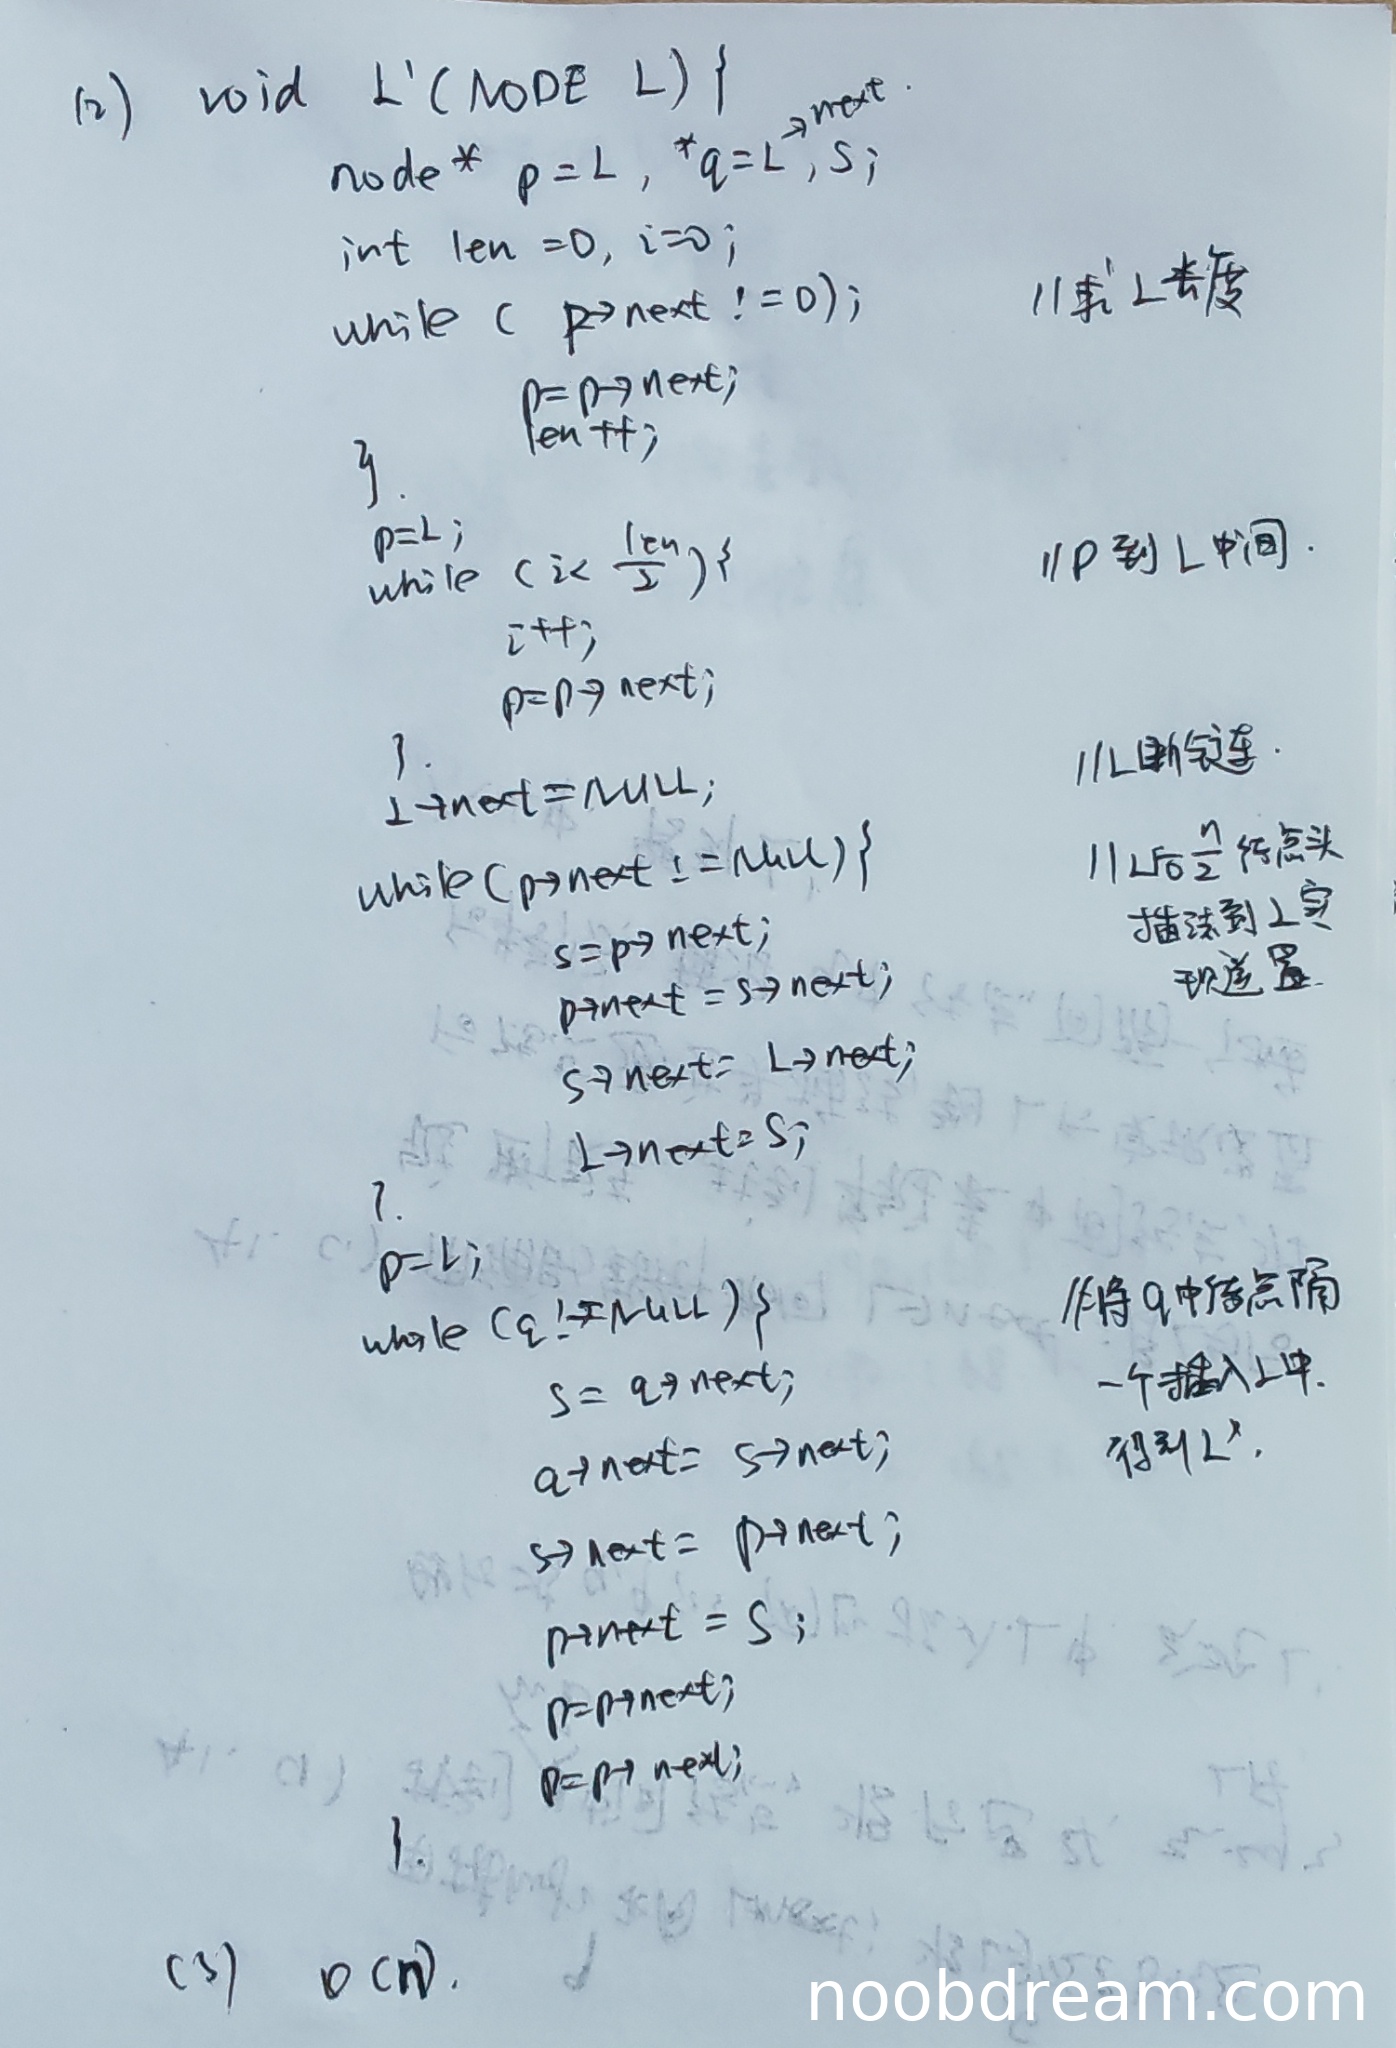 (2) void L'(NODE L) {
node* p=L, *q=L→next, S;
int len =0, i=0;
while ( p→next != 0); //求 L长度
p=p→next;
len ++;
}.
p=L;
while (i< len/2){ //P到L中间.
i++;
p=p→next;
}.
L→next=NULL; //L断链.
while(p→next !=NULL){ //L后 n/2 结点头
s=p→next; 插法到L实
p→next = s→next; 现逆置.
s→next= L→next;
L→next=S;
}.
p=L;
while (q !=NULL){ //将q中结点隔
s= q→next; 一个插入L中.
q→next= s→next; 得到L'.
s→next= p→next;
p→next = S;
p=p→next;
p=p→next;
}.
(3) O(n).
noobdream.com